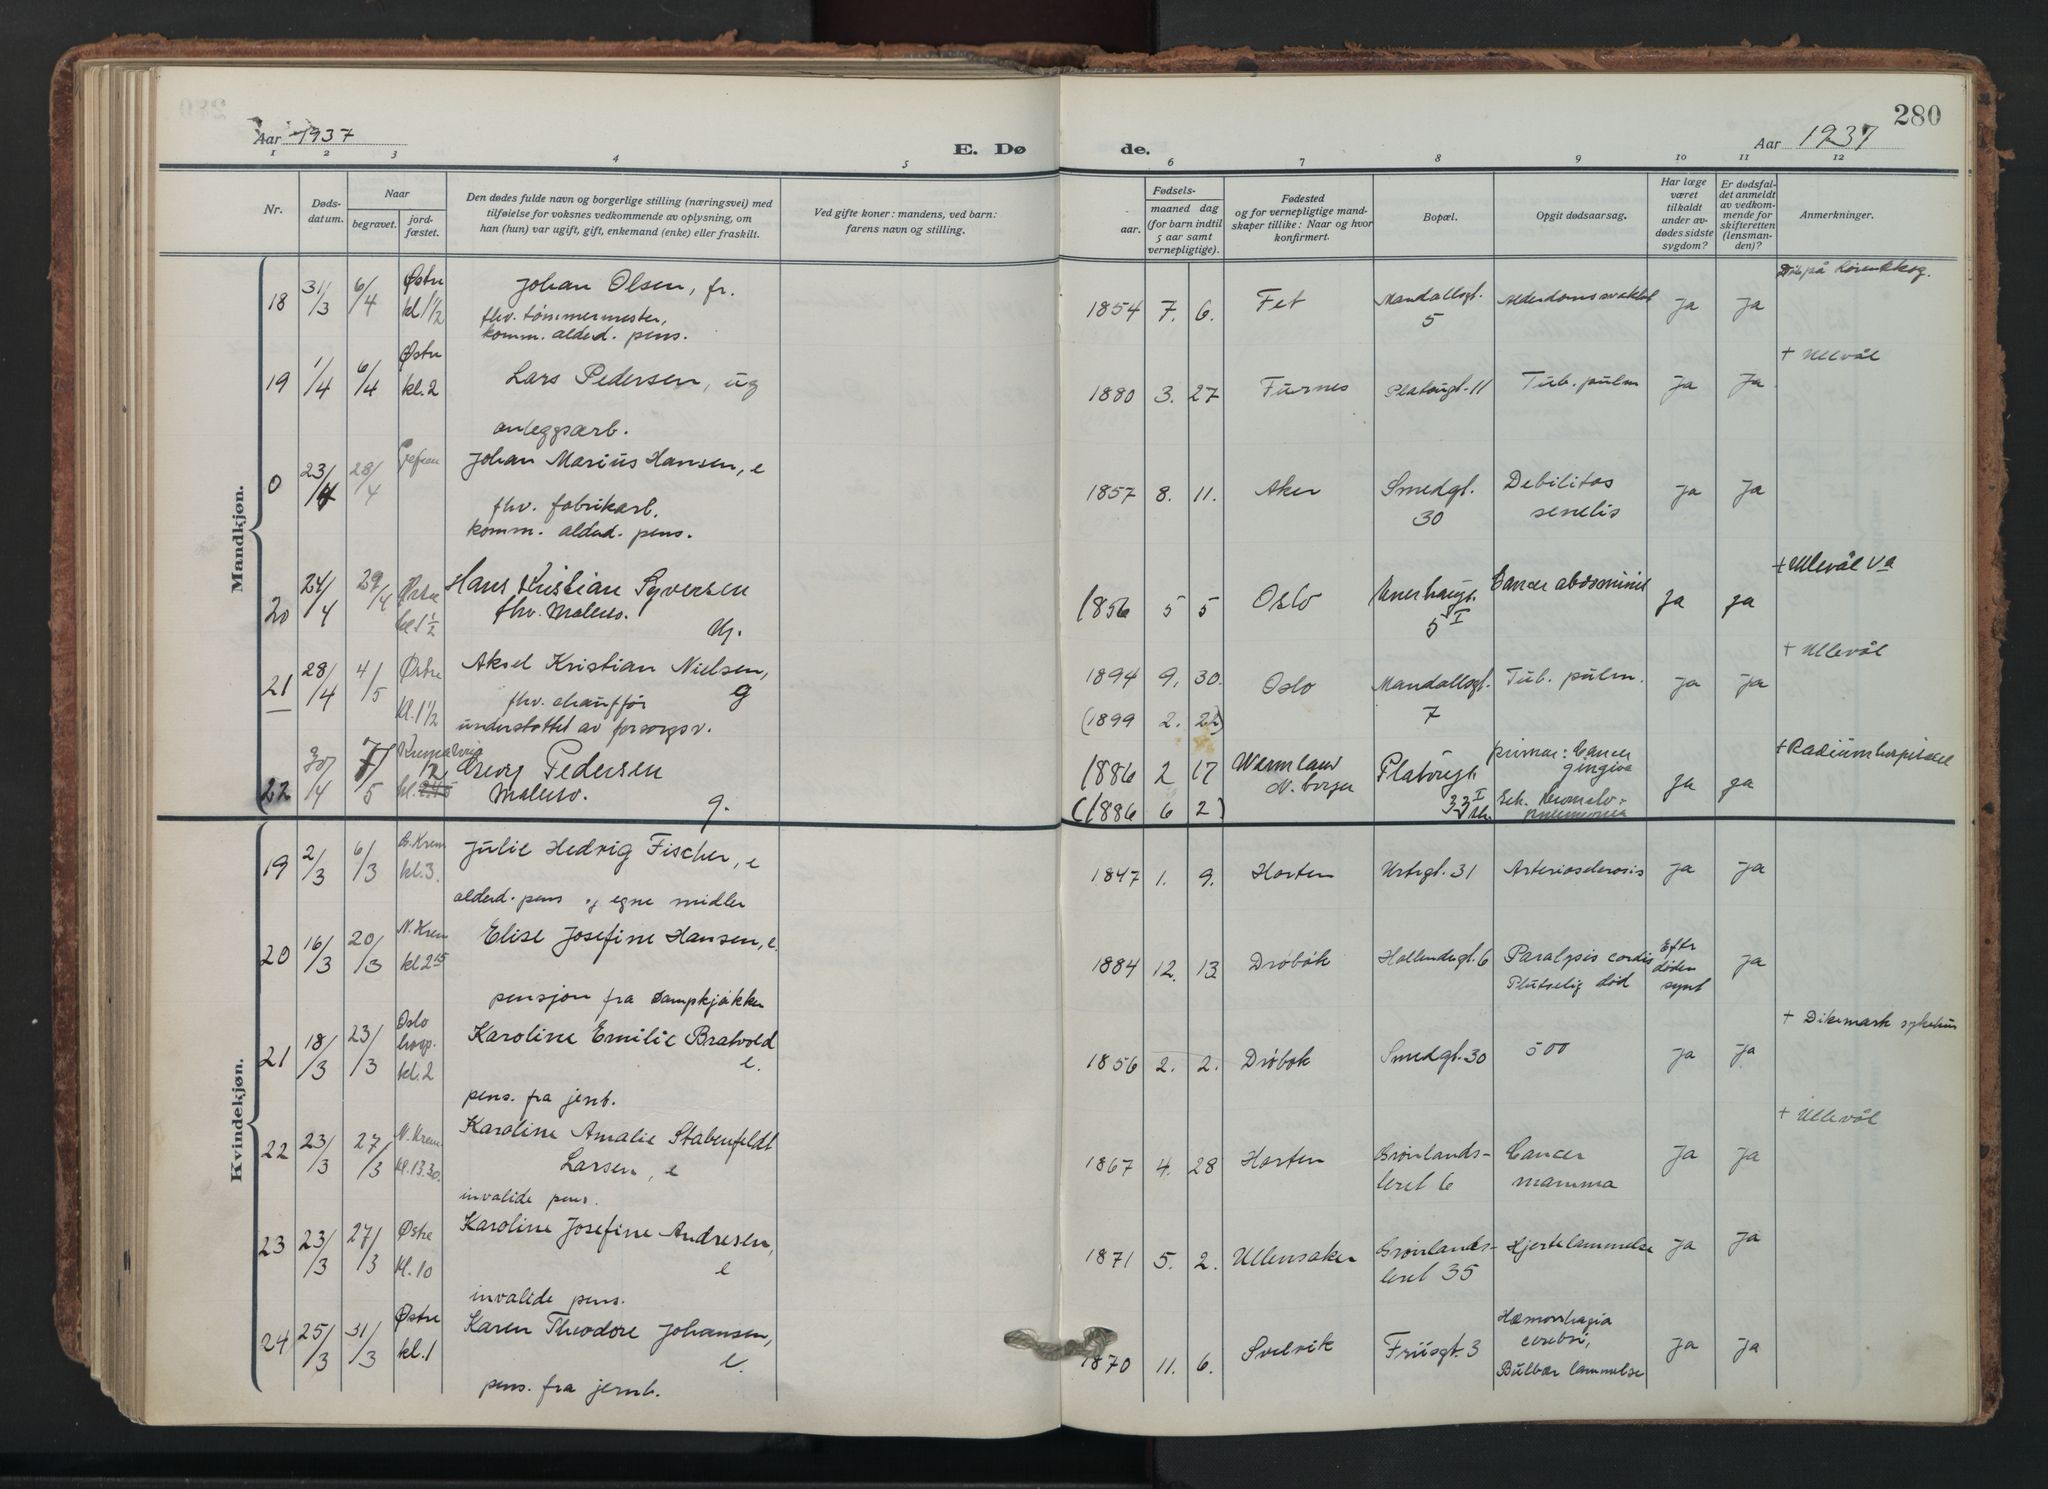 280
Aar 1937
E. Dø de.
Aar 1937
1 2 3 4 5 6 7 8 9 10 11 12
Nr.
Døds-
datum.
Naar
begravet.
jord-
fæstet.
Den dødes fulde navn og borgerlige stilling (næringsvei) med
tilføielse for voksnes vedkommende av oplysning, om
han (hun) var ugift, gift, enkemand (enke) eller fraskilt.
Ved gifte koner: mandens, ved barn:
farens navn og stilling.
Fødsels-
aar.
maaned dag
(for barn indtil
5 aar samt
vernepligtige).
Fødested
og for vernepligtige mand-
skaper tillike: Naar og hvor
konfirmert.
Bopæl.
Opgit dødsaarsag.
Har læge
været
tilkaldt
under av-
dødes sidste
sygdom?
Er dødsfal-
det anmeldt
av vedkom-
mende for
skifteretten
(lensman-
den)?
Anmerkninger.
Mandkjøn.
18 31/3 6/4 Østre kl. 1 1/2 Johan Olsen, fr. 1854 7. 6. Fet Mandallsgt. 5 Alderdomssvakhet ja ja
fhv. tømmermester,
komm. alderd. pens.
19 1/4 6/4 Østre kl. 2 Lars Pedersen, ug 1880 3. 27 Furnes Platousgt. 11 Tub. pulm ja ja + Ullevål
anleggsarb.
0 23/4 28/4 Johan Marius Hansen, e 1857 8. 11. Aker Smedgt. 30 Debilitas senelis ja ja
fhv. fabrikarb.
komm. alderd. pens.
20 24/4 29/4 Østre kl 1 1/2 Hans Kristian Syversen 1856 5 5 Oslo 5 I Cancer abdominis ja ja + Ullevål
fhv. Malersv.
21 28/4 4/5 Østre kl. 1 1/2 Aksel Kristian Nielsen, g 1894 9. 30. Oslo Mandallsgt. 7 Tub. pulm. ja ja + Ullevål
fhv. chauffør (1899 2. 22)
understøttet av forsorgsv.
22 30/4 7/5 Georg Pedersen 1886 2 17 Wermland N. borger Platousgt. 33 I primær: Cancer gingiva ja ja + Radiumhospitalet
Malersv. g. (1886 6 2) Sek. pneumonia
Kvindekjøn.
19 2/3 6/3 G. Krem kl. 3. Julie Hedvig Fischer, e 1847 1. 9. Horten Urtegt. 31 Arteriosclerosis ja ja
alderd. pens og egne midler
20 16/3 20/3 N. Krem kl 2 15 Elise Josefine Hansen, e. 1884 12. 13 Drøbak Hollendegt. 6 Paralysis cordis Efter døden synt ja
pensjon fra Dampkjøkken Plutselig død
21 18/3 23/3 Oslo hosp. kl. 2 Karoline Emilie Bratvold e. 1856 2. 2. Drøbak Smedgt. 30 500 ja ja + Dikemark sykehus
pens. fra jernb.
22 23/3 27/3 N. Krem kl. 13.30. Karoline Amalie Stabenfeldt 1867 4. 28 Horten Grønlands- Cancer ja ja + Ullevål
Larsen, e leret 6 mamma
invalide pens.
23 23/3 27/3 Østre kl. 10 Karoline Josefine Andresen, e 1871 5. 2. Ullensaker Grønlands- leret 35 Hjertelammelse ja ja
invalide pens.
24 25/3 31/3 Østre kl. 1 Karen Theodore Johansen, e. 1870 11. 6. Svelvik Friisgt. 3 Hæmorrhagia cerebri, ja ja
pens. fra jernb. Bulbær lammelse